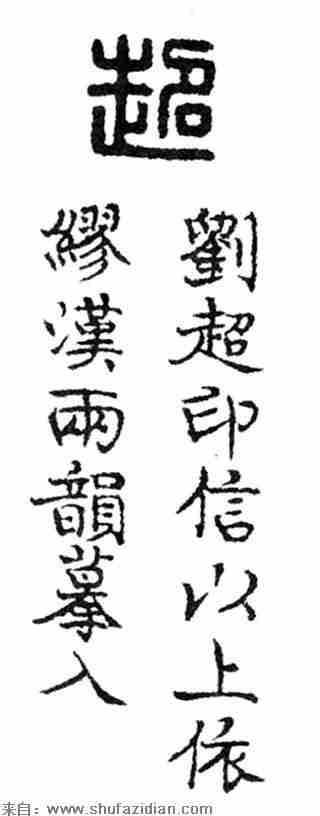 超
劉超印信以上依
繆漢兩韻摹入
来自：www.shufazidian.com